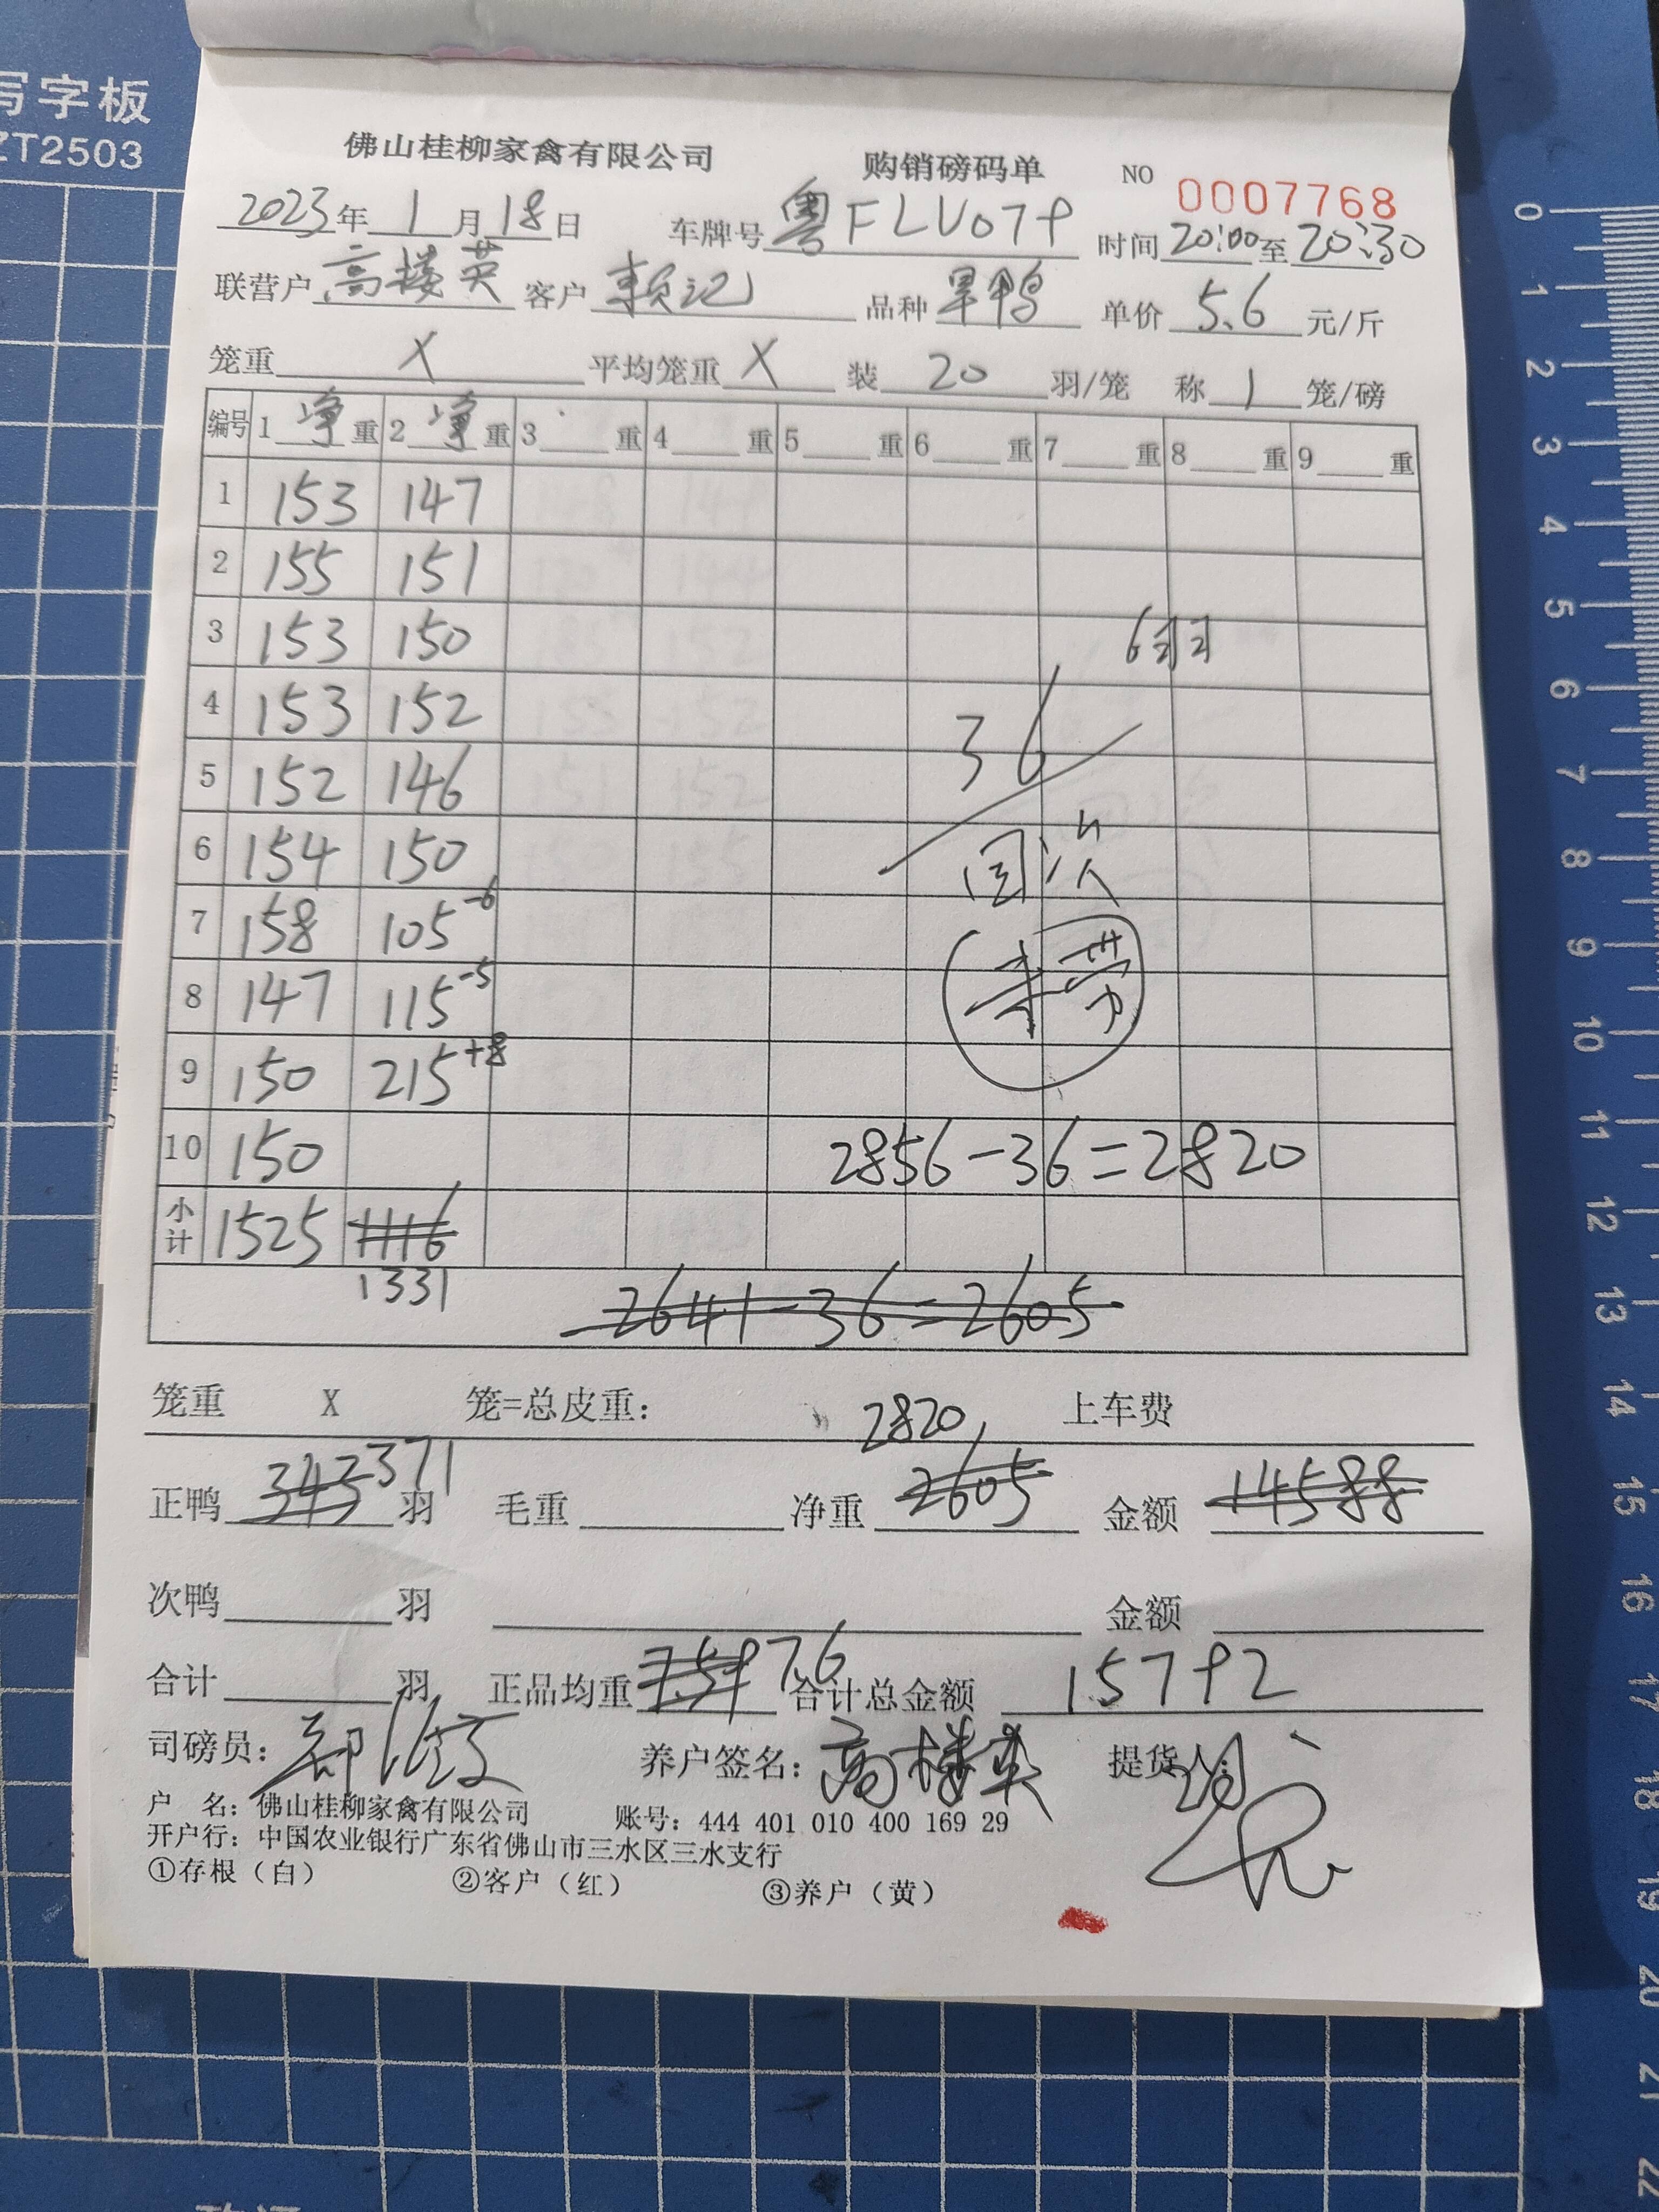 写字板
ZT2503
佛山桂柳家禽有限公司 购销磅码单 NO 0007768
2023年1月18日 车牌号 粤FLV079 时间 20:00至20:30
联营户 高楼英 客户 赖记 品种 旱鸭 单价 5.6 元/斤
笼重 X 平均笼重 X 装 20 羽/笼 称 1 笼/磅
编号 1 净 重 2 净 重 3 重 4 重 5 重 6 重 7 重 8 重 9 重
1 153 147
2 155 151
3 153 150 6羽
4 153 152 36
5 152 146
6 154 150 回次
7 158 105-6
8 147 115-5
9 150 215+8
10 150 2856-36=2820
小计 1525 1116
1331
2641-36=2605
笼重 X 笼=总皮重: 2820 上车费
正鸭 343 371 羽 毛重 净重 2605 金额 14588
次鸭 羽 金额
合计 羽 正品均重 7.59 7.6 合计总金额 15792
司磅员: 养户签名: 高楼英 提货人:
户 名: 佛山桂柳家禽有限公司 账号: 444 401 010 400 169 29
开户行: 中国农业银行广东省佛山市三水区三水支行
①存根（白） ②客户（红） ③养户（黄）
0
1
2
3
4
5
6
7
8
9
10
11
12
13
14
15
16
17
18
19
20
21
22